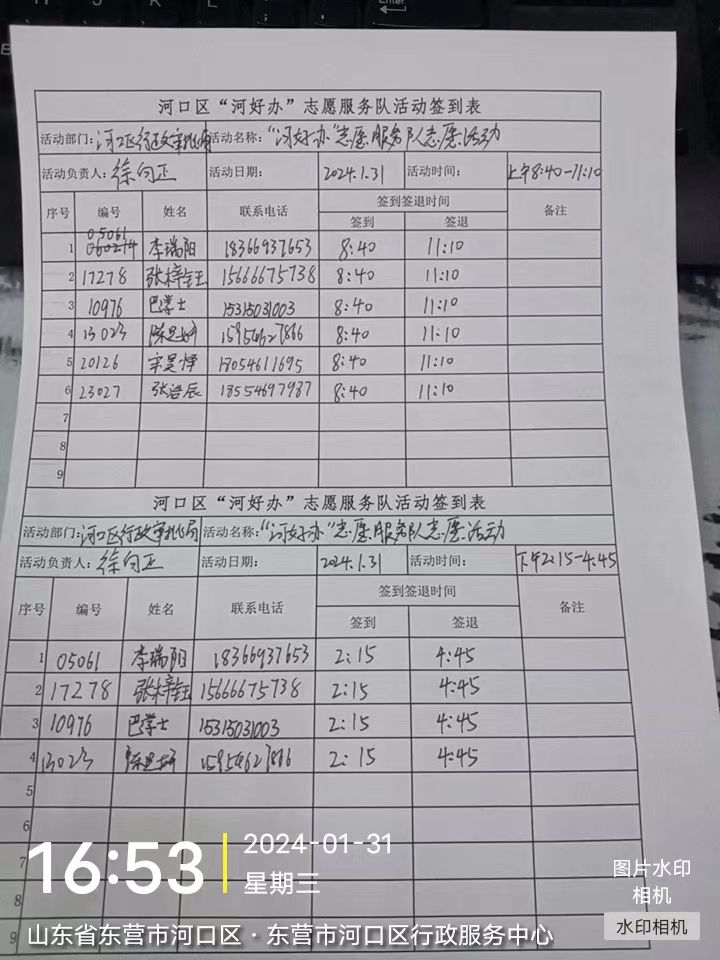 河口区“河好办”志愿服务队活动签到表
活动部门: 河口区行政审批局 活动名称: “河好办”志愿服务队志愿活动
活动负责人: 徐向正 活动日期: 2024.1.31 活动时间: 上午8:40-11:10
序号 编号 姓名 联系电话 签到签退时间 备注
签到 签退
05061
1 李瑞阳 18366937653 8:40 11:10
2 17278 张梓钰 15666675738 8:40 11:10
3 10976 巴学士 15315031003 8:40 11:10
4 13023 8:40 11:10
5 20126 18054611695 8:40 11:10
6 23027 张浩辰 18554697987 8:40 11:10
7
8
9
河口区“河好办”志愿服务队活动签到表
活动部门: 河口区行政审批局 活动名称: “河好办”志愿服务队志愿活动
活动负责人: 徐向正 活动日期: 2024.1.31 活动时间: 下午2:15-4:45
序号 编号 姓名 联系电话 签到签退时间 备注
签到 签退
1 05061 李瑞阳 18366937653 2:15 4:45
2 17278 张梓钰 15666675738 2:15 4:45
3 10976 巴学士 15315031003 2:15 4:45
4 13023 2:15 4:45
5
6
7
8
9
16:53
2024-01-31
星期三
山东省东营市河口区·东营市河口区行政服务中心
图片水印
相机
水印相机